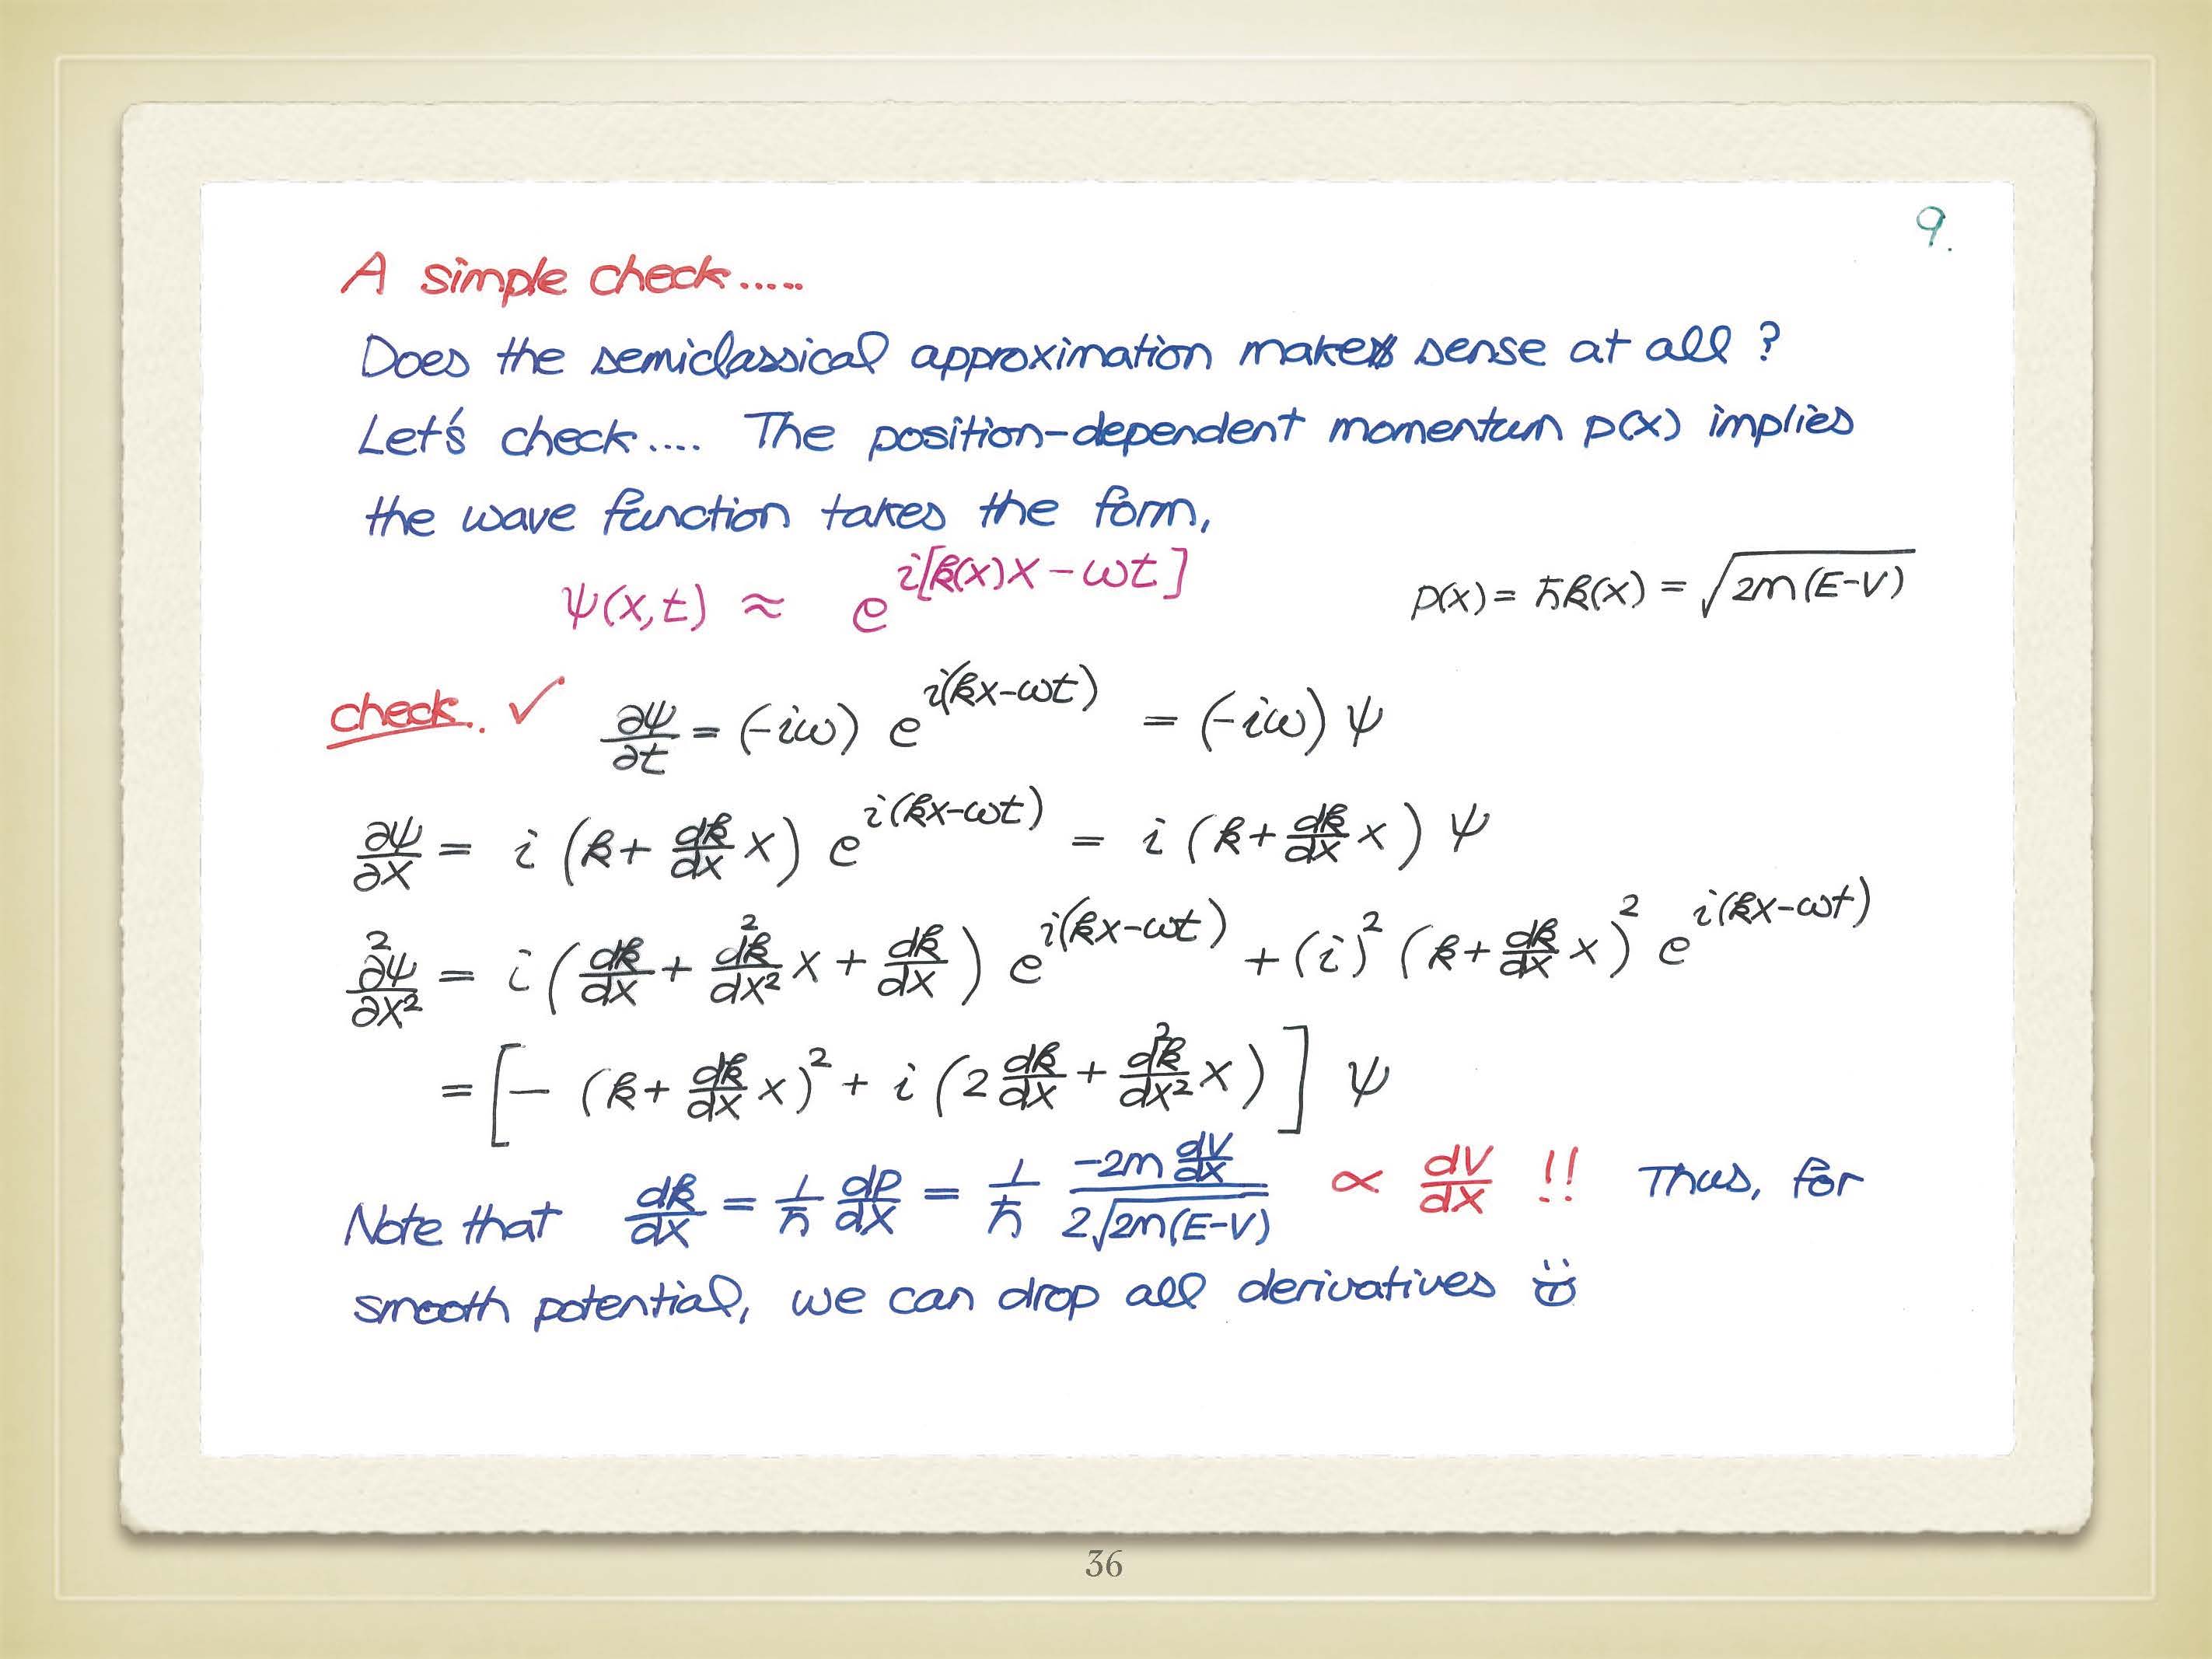 9.
A simple check.....
Does the semiclassical approximation make sense at all ?
Let's check.... The position-dependent momentum p(x) implies
the wave function takes the form,
ψ(x,t) ≈ e^{i[k(x)x - ωt]} p(x) = ħk(x) = √(2m(E-V))
check.. ✓ ∂ψ/∂t = (-iω) e^{i(kx-ωt)} = (-iω) ψ
∂ψ/∂x = i (k + dk/dx x) e^{i(kx-ωt)} = i (k + dk/dx x) ψ
∂²ψ/∂x² = i (dk/dx + d²k/dx² x + dk/dx) e^{i(kx-ωt)} + (i)² (k + dk/dx x)² e^{i(kx-ωt)}
= [- (k + dk/dx x)² + i (2 dk/dx + d²k/dx² x)] ψ
Note that dk/dx = 1/ħ dp/dx = 1/ħ (-2m dV/dx)/(2√(2m(E-V))) ∝ dV/dx !! Thus, for
smooth potential, we can drop all derivatives
36